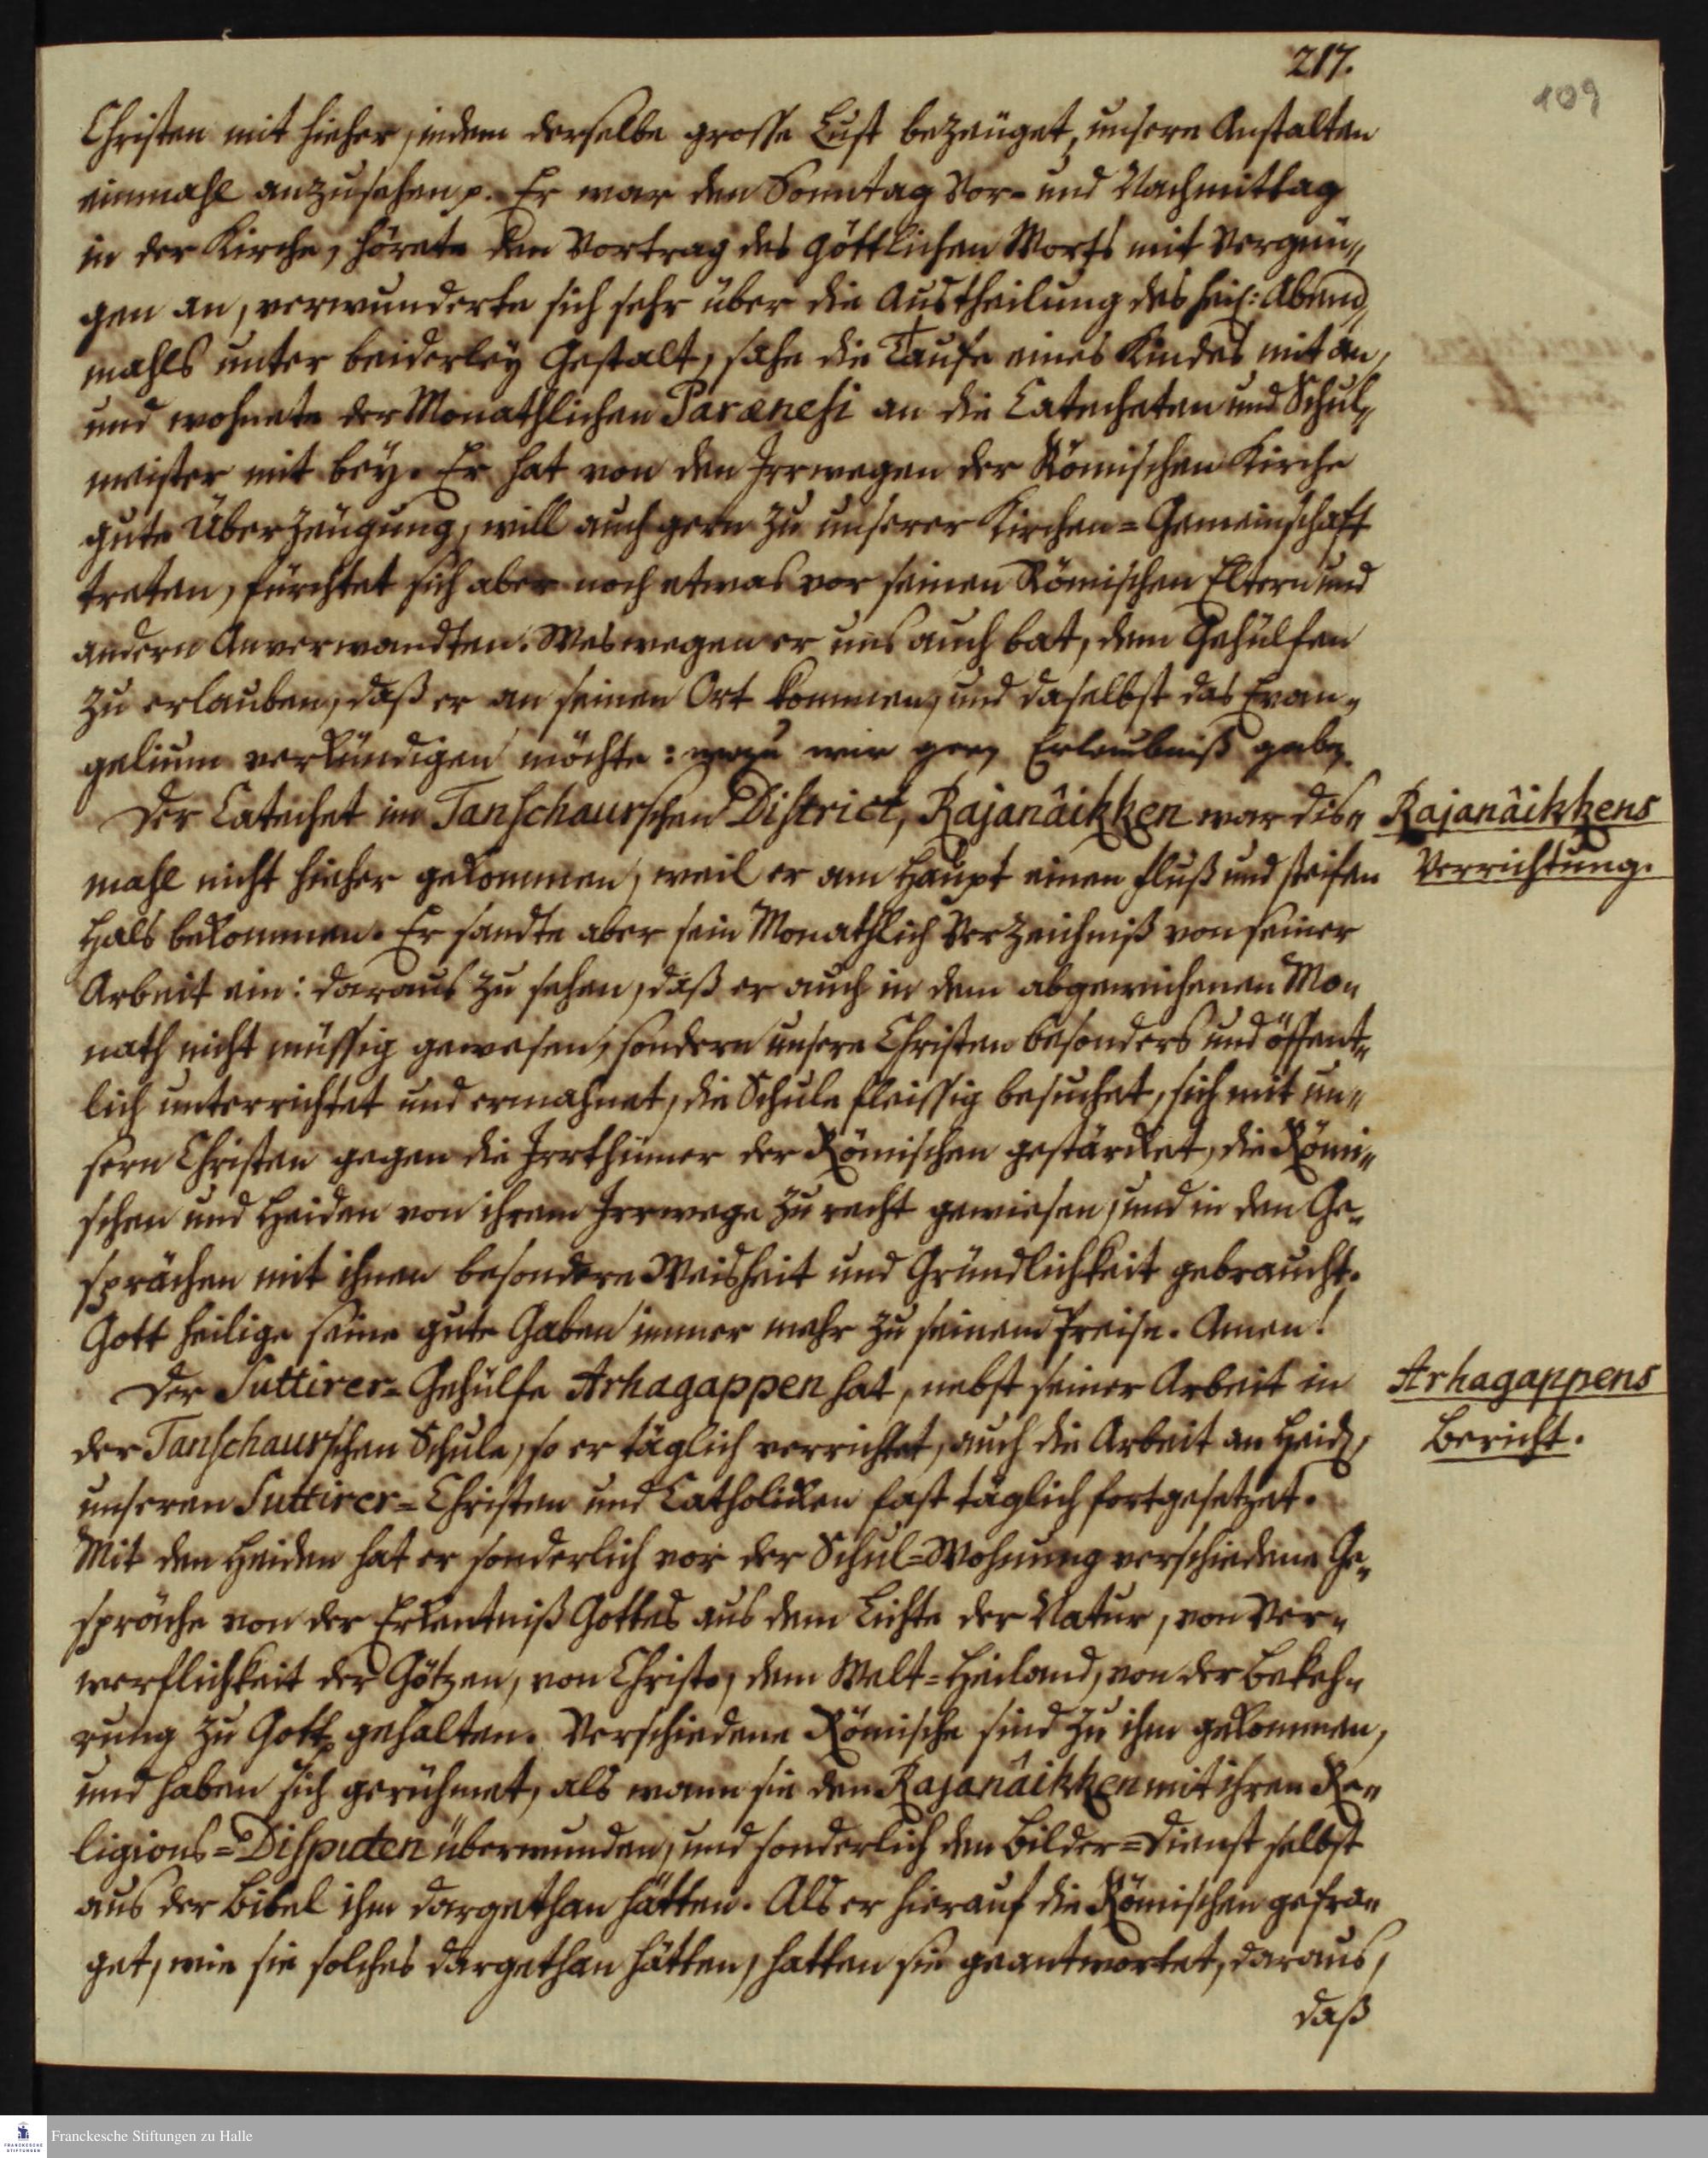 217.
109
Christen mit hieher, indem derselbe grosse Lust bezeüget, unsere Anstalten
einmahl anzusehen p. Er war den Sonntag Vor- und Nachmittag
in der Kirche, hörete den Vortrag des Göttlichen Worts mit Vergnü„
gen an, verwunderte sich sehr über die Austheilung des heil: Abend„
mahls unter beiderley Gestalt, sahe die Taufe eines Kindes mit an,
und wohnete der Monathlichen Parænesi an die Catecheten und Schul„
meister mit bey. Er hat von den Irrwegen der Römischen Kirche
gute Überzeügung, will auch gern zu unserer Kirchen=Gemeinschaft
treten, fürchtet sich aber noch etwas vor seinen Römischen Eltern und
andern Anverwandten. Weswegen er uns auch bat, dem Gehülfen
zu erlauben, daß er an seinen Ort kommen, und daselbst das Evan„
gelium verkündigen möchte: wozu wir gern Erlaubniß gaben.
Der Catechet im Tanschaurschen District, Rajanâikken war dis„
Rajanâikkens
Verrichtung.
mahl nicht hieher gekommen, weil er am Haupt einen Fluß und steifen
Hals bekommen. Er sandte aber sein Monathlich Verzeichniß von seiner
Arbeit ein: daraus zu sehen, daß er auch in dem abgewichenen Mo„
nath nicht müssig gewesen, sondern unsere Christen besonders und öffent„
lich unterrichtet und ermahnet, die Schule fleissig besuchet, sich mit un„
sern Christen gegen die Irrthümer der Römischen gestärcket, die Römi„
schen und Heiden von ihrem Irrwege zu recht gewiesen, und in den Ge„
sprächen mit ihnen besondere Weisheit und Gründlichkeit gebraucht.
Gott heilige seine gute Gaben immer mehr zu seinem Preise. Amen!
Der Suttirer=Gehülfe Arhagappen hat, nebst seiner Arbeit in
Arhagappens
Bericht.
der Tanschaurschen Schule, so er täglich verrichtet, auch die Arbeit an Heiden,
unseren Suttirer=Christen und Catholicken fast täglich fortgesetzet.
Mit den Heiden hat er sonderlich vor der Schul=Wohnung verschiedene Ge„
spräche von der Erkentniß Gottes aus dem Lichte der Natur, von Ver„
werflichkeit der Götzen, von Christo, dem Welt=Heiland, von der Bekeh„
rung zu Gott p gehalten. Verschiedene Römische sind zu ihm gekommen,
und haben sich gerühmet, als wann sie den Rajanâikken mit ihren Re„
ligions=Disputen überwunden, und sonderlich den Bilder=Dienst selbst
aus der Bibel ihm dargethan hätten. Als er hierauf die Römischen gefra„
get, wie sie solches dargethan hätten, hatten sie geantwortet, daraus,
daß
FRANCKESCHE
STIFTUNGEN
Franckesche Stiftungen zu Halle